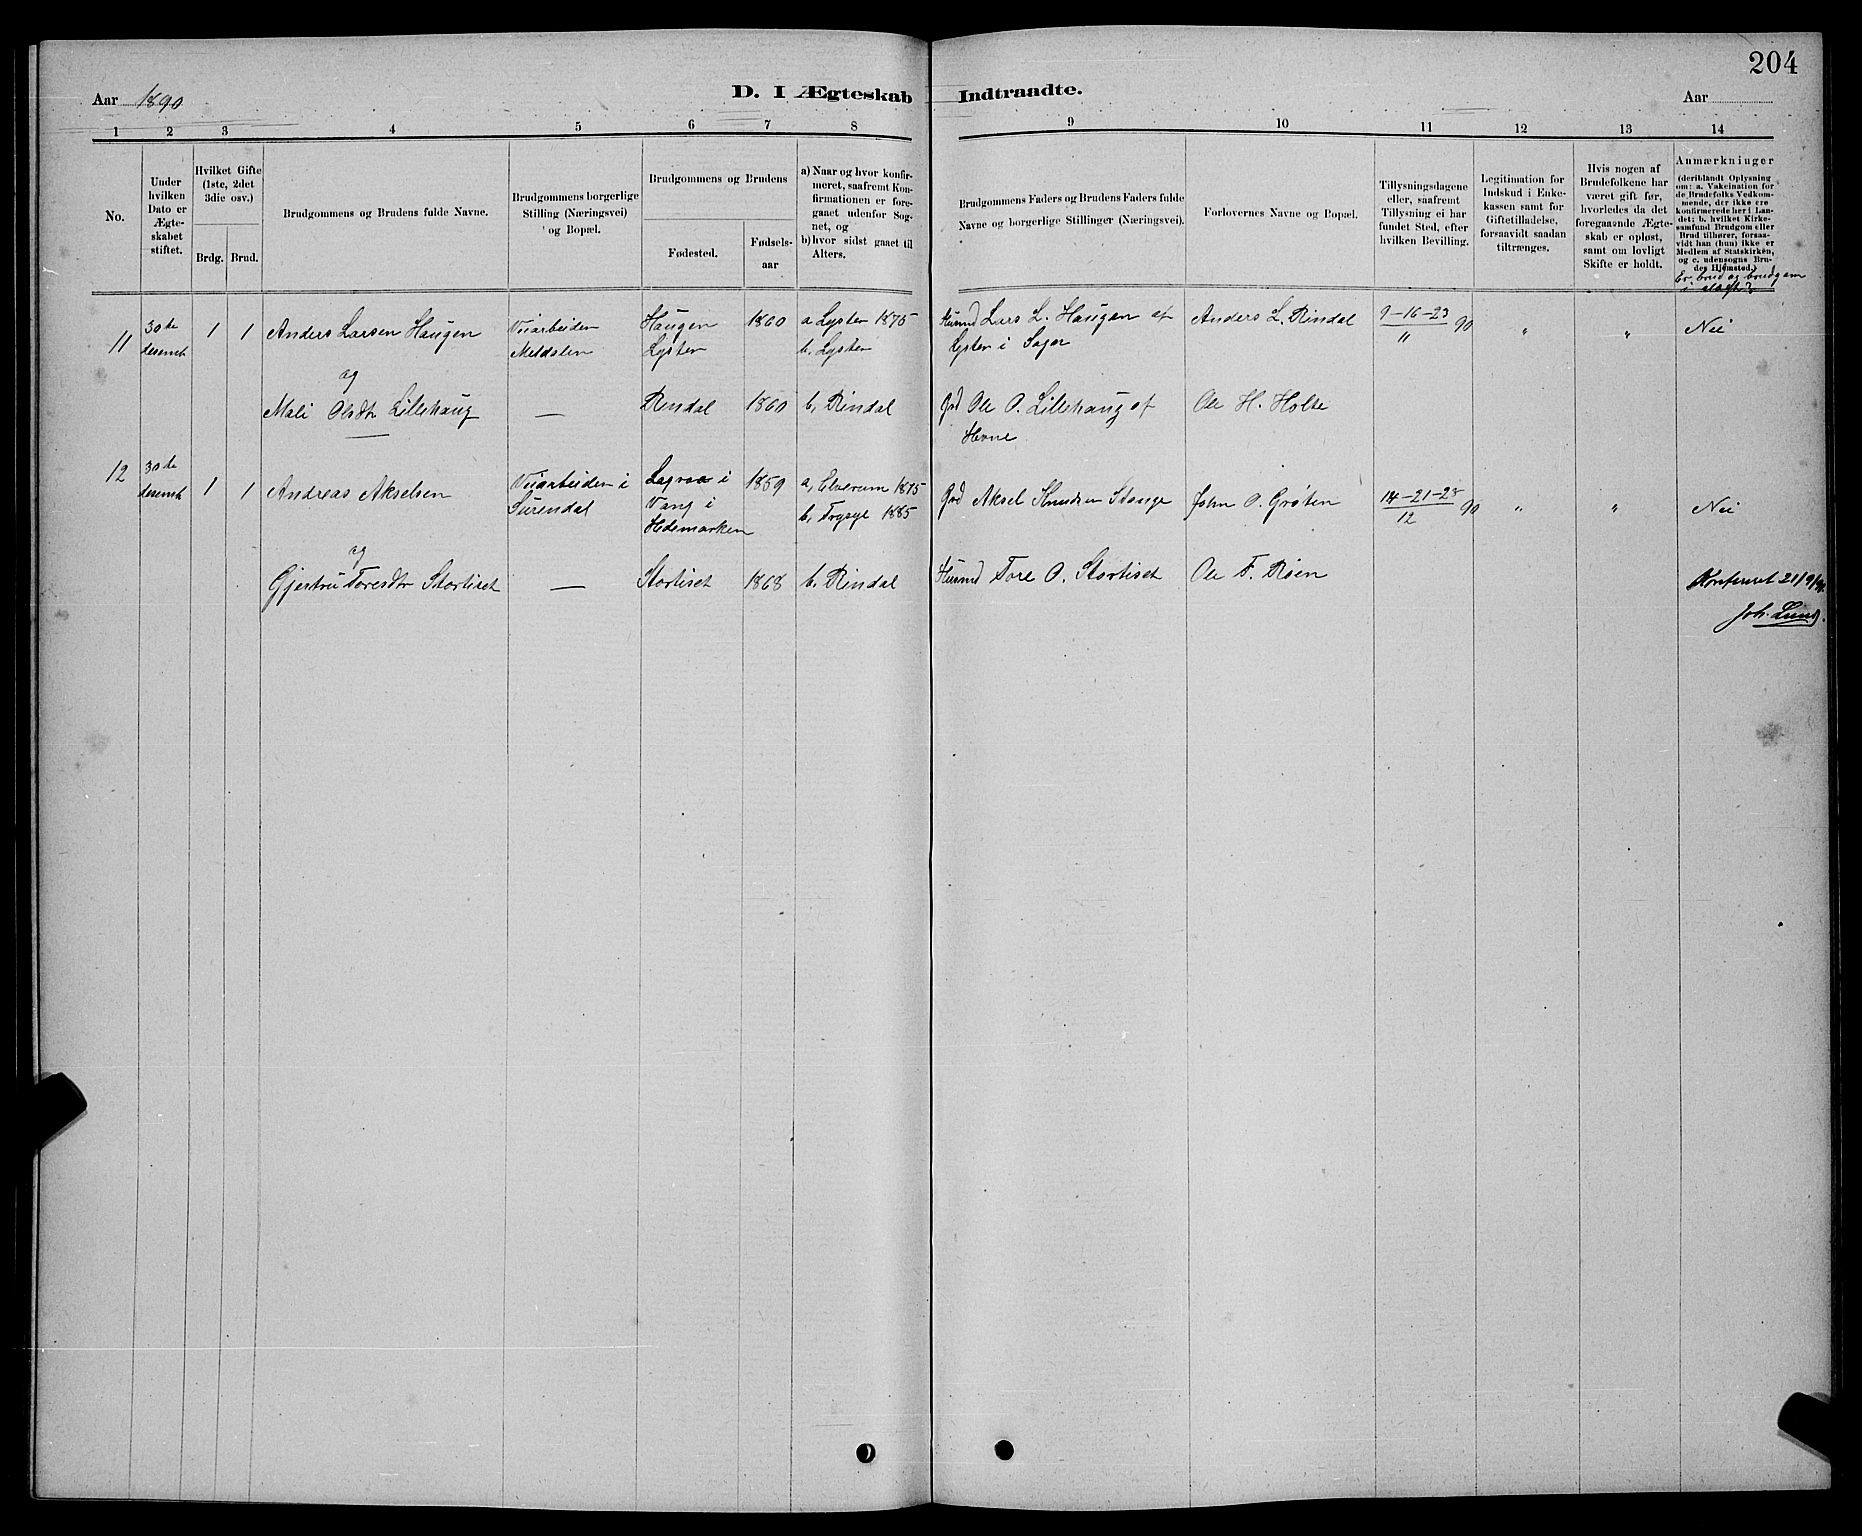 204
Aar 1890
D. I Ægteskab Indtraadte.
Aar
1 2 3 4 5 6 7 8 9 10 11 12 13 14
No.
Under
hvilken
Dato er
Ægte-
skabet
stiftet.
Hvilket Gifte
(1ste, 2det
3die osv.)
Brdg. Brud.
Brudgommens og Brudens fulde Navne.
Brudgommens borgerlige
Stilling (Næringsvei)
og Bopæl.
Brudgommens og Brudens
Fødested.
Fødsels-
aar
a) Naar og hvor konfir-
meret, saafremt Kon-
firmationen er fore-
gaaet udenfor Sog-
net, og
b) hvor sidst gaaet til
Alters.
Brudgommens Faders og Brudens Faders fulde
Navne og borgerlige Stillinger (Næringsvei).
Forlovernes Navne og Bopæl.
Tillysningsdagene
eller, saafremt
Tillysning ei har
fundet Sted, efter
hvilken Bevilling.
Legitimation for
Indskud i Enke-
kassen samt for
Giftetilladelse,
forsaavidt saadan
tiltrænges.
Hvis nogen af
Brudefolkene har
været gift før,
hvorledes da det
foregaaende Ægte-
skab er opløst,
samt om lovligt
Skifte er holdt.
Anmærkninger
(deriblandt Oplysning
om: a. Vakcination for
de Brudefolks Vedkom-
mende, der ikke ere
konfirmerede her i Lan-
det; b. hvilket Kirke-
samfund Brudgom eller
Brud tilhører, forsaa-
vidt han (hun) ikke er
Medlem af Statskirken,
og c. udensogns Bru-
des Hjemsted.)
Er brud og brudgom
i slægt?
11
30te
desemb
1
1
Anders Larsen Haugen
Veiarbeider
Meldalen
Haugen
Lyster
1860
a Lyster 1875
b, Lyster
Husmd Lars L. Haugen af
Lyster i Sogn
Anders L. Rindal
9-16-23
11 90
"
"
Nei
og
Mali Olsdtr Lillehaug
—
Rindal
1860
b, Rindal
Grd Ole O. Lillehaug af
Hevne
Ole H. Holte
12
30te
desemb
1
1
Andreas Akselsen
Veiarbeider i
Surendal
i
Vang i
Hedemarken
1859
a, Elverum 1875
b, Trysyl 1885
Grd Aksel Knudsen Stange
John O. Grøten
14-21-28
12 90
"
"
Nei
og
Gjertru Toresdtr Stortiset
—
Stortiset
1868
b, Rindal
Husmd Tore O. Stortiset
Ole F. Røen
21/9
Joh. Lund.